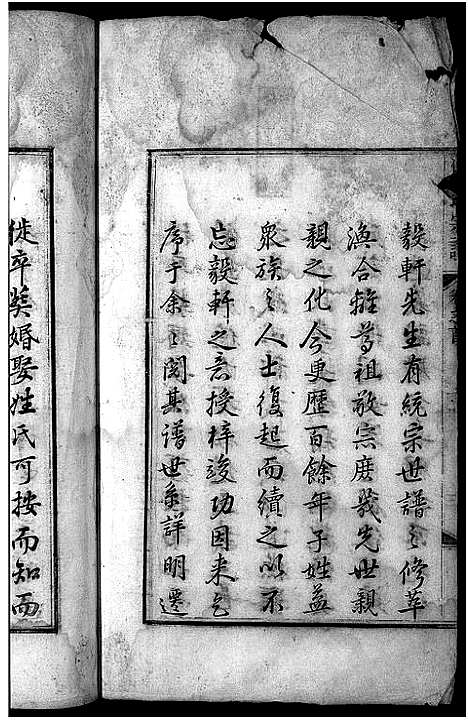 毅軒先生有統宗世譜之修萃
渙合離尊祖敬宗庶幾先世親
親之化今更歷百餘年子姓益
衆族之人士復起而續之以不
忘毅軒之意授梓竣功因来乞
序于余々閱其谱世系詳明遷
徙卒葵婚娶姓氏可按而知而